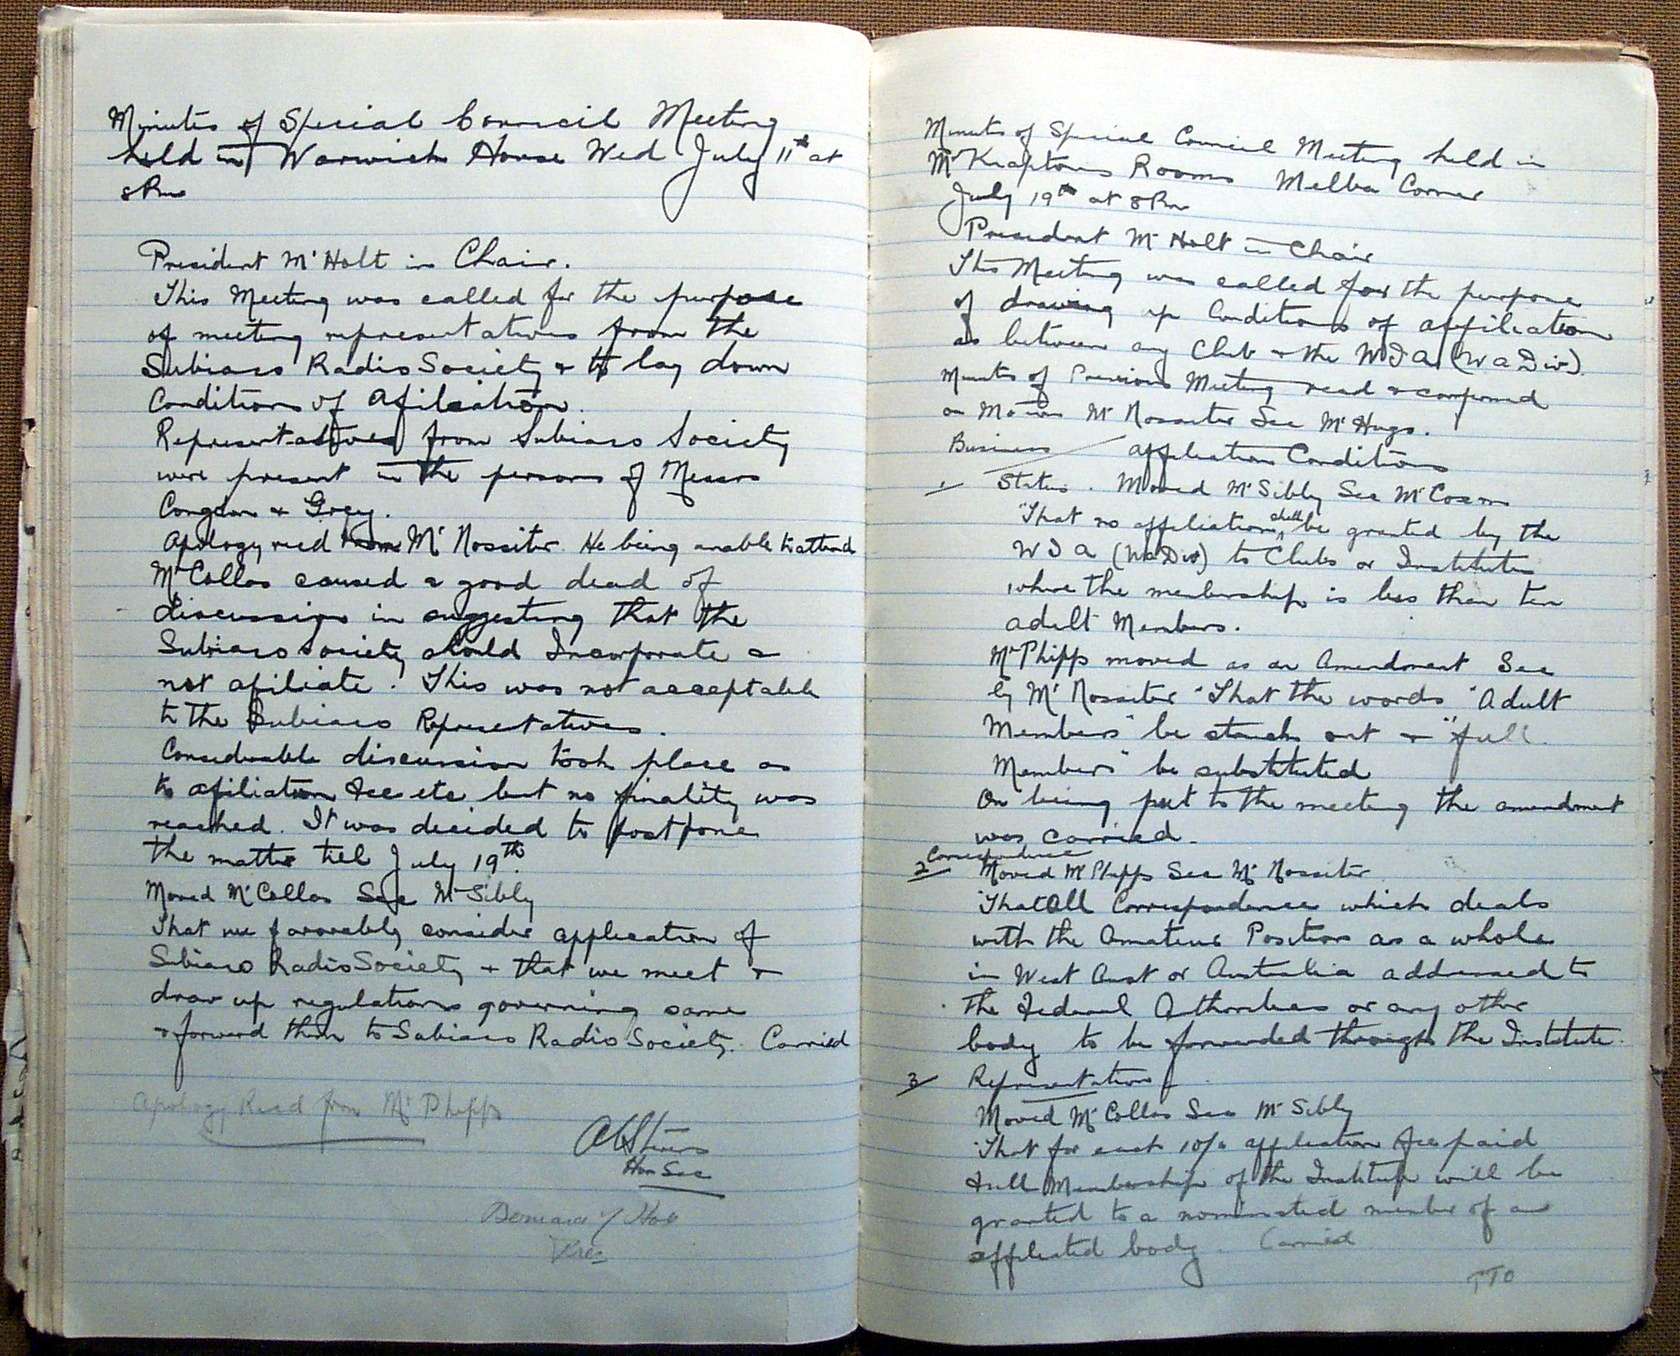 Minutes of Special Council Meeting
held in Warwick House Wed July 11th at
8 Pm
President Mr Holt in Chair.
This Meeting was called for the purpose
of meeting representatives from the
Subiaco Radio Society & to lay down
Conditions of Afiliation.
Representatives from Subiaco Society
were present in the persons of Messrs
Congdon & Grey.
Apology recd from Mr Rossiter. He being unable to attend
Mr Collas caused a good deal of
discussion in suggesting that the
Subiaco Society should Incorporate &
not afiliate. This was not acceptable
to the Subiaco Representatives.
Considerable discussion took place as
to afiliation fee etc but no finality was
reached. It was decided to postpone
the matter till July 19th.
Moved Mr Collas Sec Mr Sibly
That we favorably consider application of
Subiaco Radio Society & that we meet &
draw up regulations governing same
& forward them to Subiaco Radio Society. Carried
Apology Read from Mr Phipps
Hon Sec
Holt
Pres
Minutes of Special Council Meeting held in
Mr Rooms Melba Corner
July 19th at 8 Pm
President Mr Holt in Chair
This Meeting was called for the purpose
of drawing up Conditions of affiliation
as between any Club & the W I A (W A Div).
Minutes of Previous Meeting read & confirmed
on Motion Mr Rossiter Sec Mr Hugo.
Business affiliation Conditions
1 Status. Moved Mr Sibly Sec Mr Coxon
"That no affiliation shall be granted by the
W I A (W A Div) to Clubs or Institutes
where the membership is less than ten
adult Members.
Mr Phipps moved as an Amendment Sec
by Mr Rossiter "That the words "Adult
Members" be struck out & "full
Members" be substituted
On being put to the meeting the amendment
was carried.
2 Correspondence
Moved Mr Phipps Sec Mr Rossiter
"That all Correspondence which deals
with the Amateur Position as a whole
in West Aust or Australia addressed to
the Federal Authorities or any other
body to be forwarded through the Institute.
3 Representation
Moved Mr Collas Sec Mr Sibly
"That for each 10/- application fee paid
full Membership of the Institute will be
granted to a nominated member of an
affiliated body. Carried
PTO